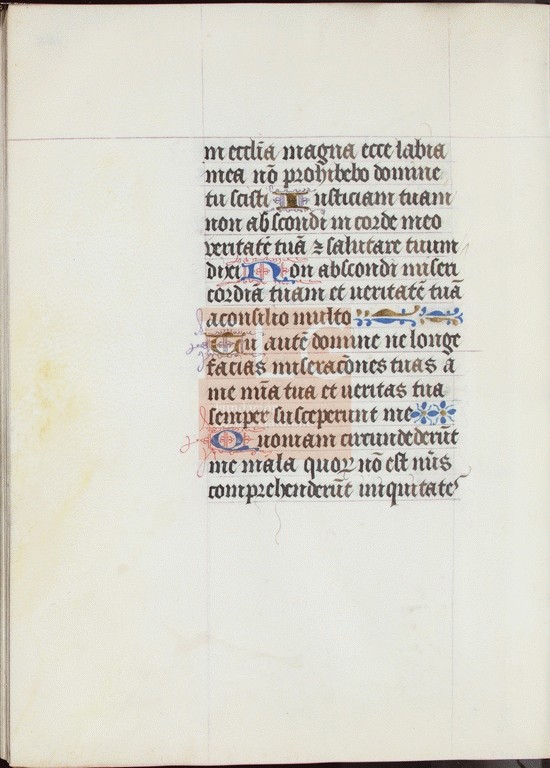 in ecclīa magna ecce labia
mea nō prohibebo domine
tu scisti Iusticiam tuam
non abscondi in corde meo
veritatē tuā ⁊ salutare tuum
dixi Non abscondi miseri
cordiā tuam et ueritatē tuā
a consilio multo
Tu autē domine ne longe
facias miseracōnes tuas a
me mīa tua et ueritas tua
semper susceperunt me
Quoniam circundederūt
me mala quoꝝ nō est nūs
comprehenderūt iniquitates